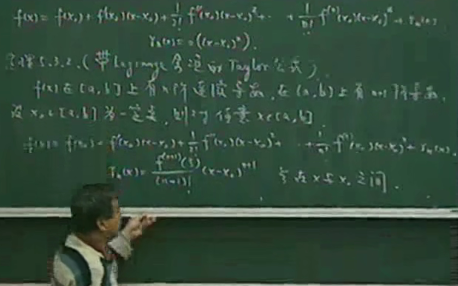 f(x) = f(x₀) + f'(x₀)(x-x₀) + 1/2! f''(x₀)(x-x₀)² + ··· + 1/n! f⁽ⁿ⁾(x₀)(x-x₀)ⁿ + rₙ(x)
rₙ(x) = o((x-x₀)ⁿ).
定理5.3.2. (带Lagrange余项的Taylor公式)
f(x)在[a,b]上有n阶连续导数, 在(a,b)上有n+1阶导数.
设x₀∈[a,b]为一定点, 则对于任意x∈[a,b]
f(x) = f(x₀) + f'(x₀)(x-x₀) + 1/2! f''(x₀)(x-x₀)² + ··· + 1/n! f⁽ⁿ⁾(x₀)(x-x₀)ⁿ + rₙ(x).
rₙ(x) = f⁽ⁿ⁺¹⁾(ξ)/(n+1)! (x-x₀)ⁿ⁺¹ ξ在x与x₀之间.